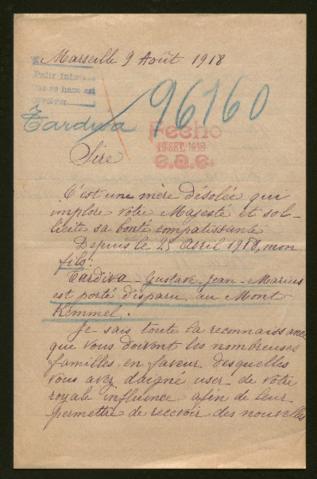 Marseille 9 Août 1918
96160
Tardiva
Fecho
C.B.C.
Sire
C'est une mère désolée qui
implore votre Majesté et sol-
licite sa bonté compatissante
Depuis le 25 Avril 1918, mon
fils:
Tardiva - Gustave Jean - Marius
est porté disparu au Mont
Kemmel.
Je sais toute la reconnaissance
que vous doivent les nombreuses
familles en faveur desquelles
vous avez daigné user de votre
royale influence afin de leur
permettre de recevoir des nouvelles